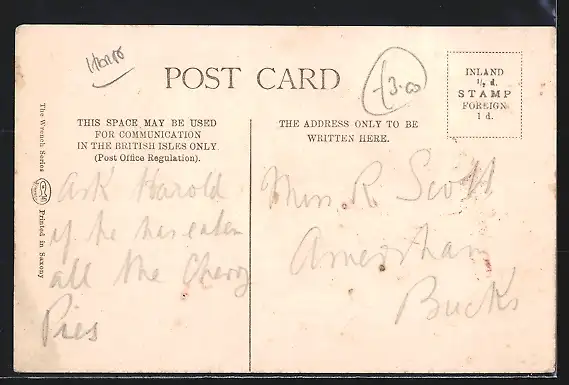 Horse
POST CARD
£3.00
INLAND
½ d.
STAMP
FOREIGN
1 d.
THIS SPACE MAY BE USED
FOR COMMUNICATION
IN THE BRITISH ISLES ONLY
(Post Office Regulation).
THE ADDRESS ONLY TO BE
WRITTEN HERE.
The Wrench Series
Printed in Saxony
Ask Harold
if he has eaten
all the Cherry
Pies
Miss R. Scott
Amersham
Bucks